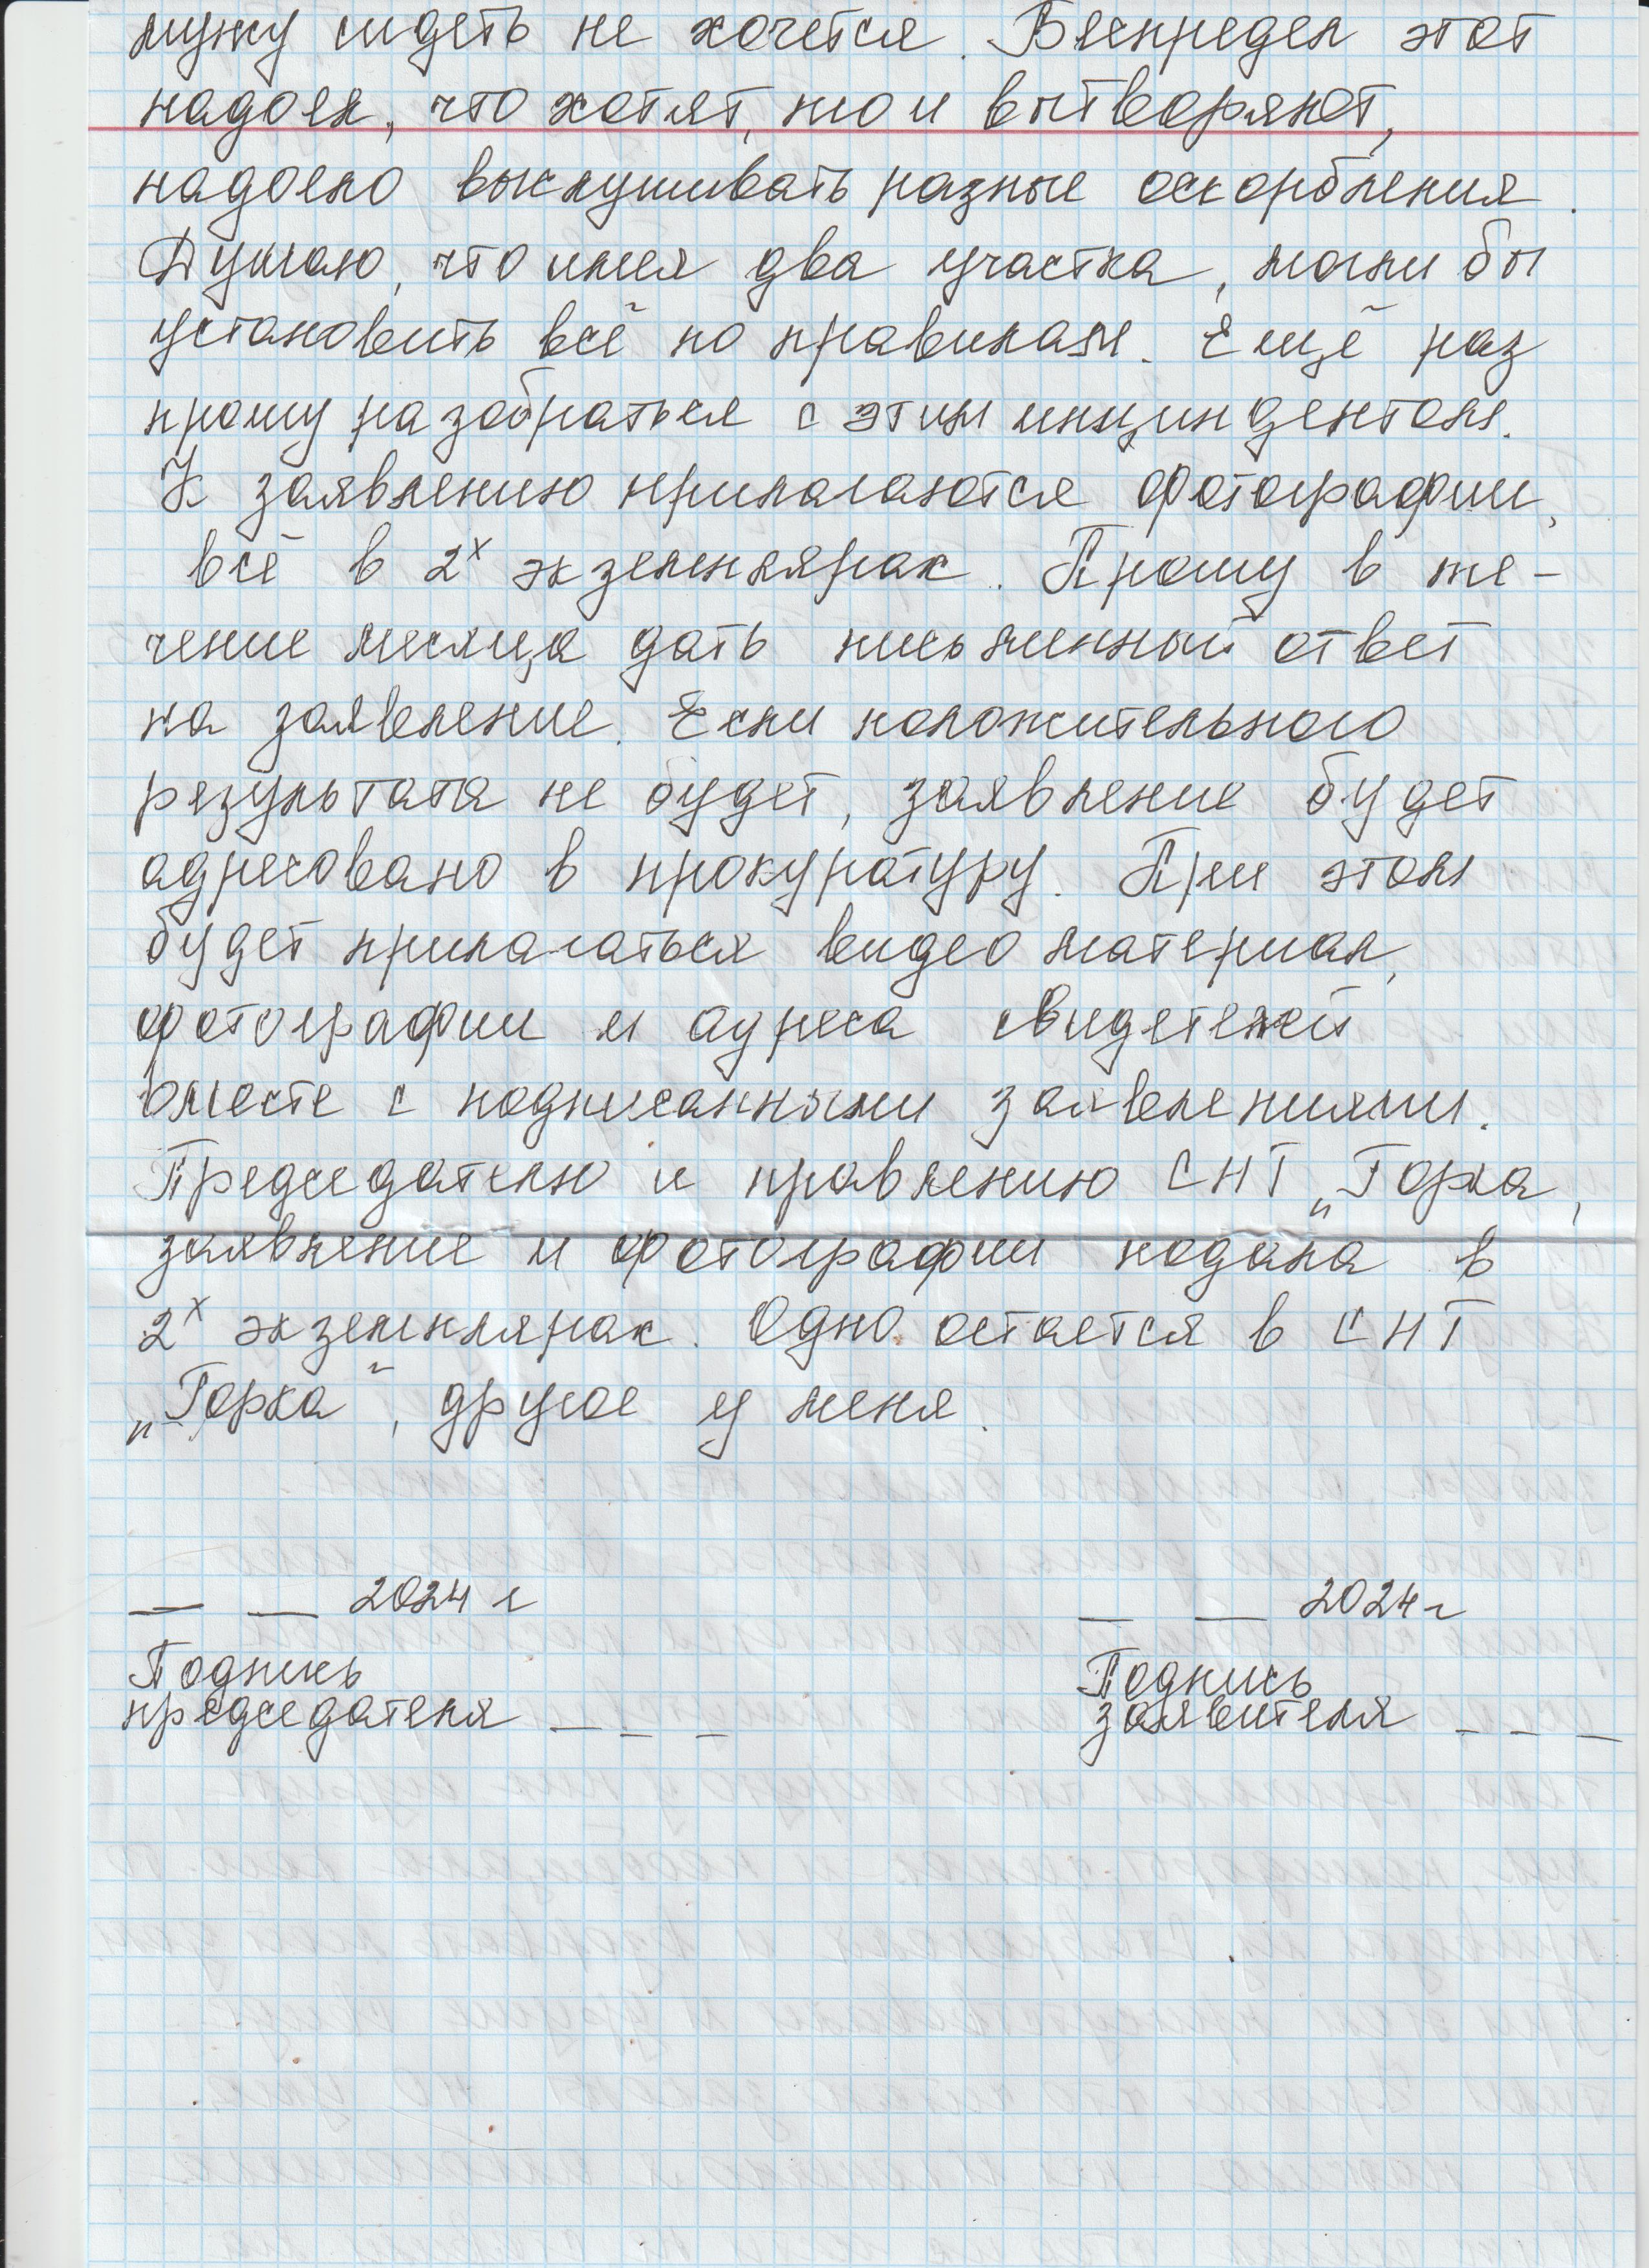 мужу сидеть не хочется. Беспредел этот
надоел, что хотят, то и вытворяют,
надоело выслушивать разные оскорбления.
Думаю, что имея два участка, могли бы
установить всё по правилам. Ещё раз
прошу разобраться с этим инциндентом.
К заявлению прилагаются фотографии,
всё в 2х экземплярах. Прошу в те-
чение месяца дать письменный ответ
на заявление. Если положительного
результата не будет, заявление будет
адресовано в прокуратуру. При этом
будет прилагаться видео материал,
фотографии и адреса свидетелей
вместе с подписанными заявлениями.
Председателю и правлению СНТ „Горка,
заявление и фотографии подана в
2х экземплярах. Одно остается в СНТ
„Горка", другое у меня.
__ __ 2024 г
__ __ 2024 г
Подпись
председателя _ _ _
Подпись
заявителя _ _ _